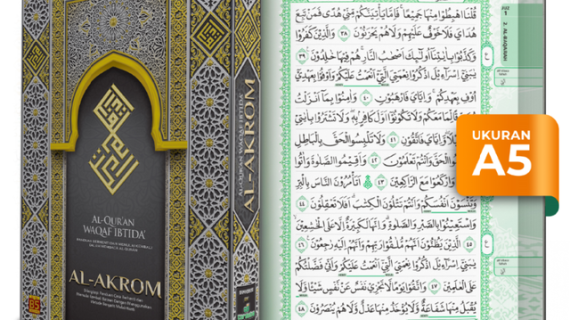 AL-QUR'AN
WAQAF IBTIDA'
AL-AKROM
AL-AKROM
2. AL-BAQARAH
قُلْنَا اهْبِطُوْا مِنْهَا جَمِيْعًا فَاِمَّا يَأْتِيَنَّكُمْ مِّنِّيْ هُدًى فَمَنْ تَبِعَ
هُدَايَ فَلَا خَوْفٌ عَلَيْهِمْ وَلَا هُمْ يَحْزَنُوْنَ ٣٨ وَالَّذِيْنَ كَفَرُوْا
وَكَذَّبُوْا بِاٰيٰتِنَآ اُولٰۤىِٕكَ اَصْحٰبُ النَّارِ هُمْ فِيْهَا خٰلِدُوْنَ ٣٩
يٰبَنِيْٓ اِسْرَاۤءِيْلَ اذْكُرُوْا نِعْمَتِيَ الَّتِيْٓ اَنْعَمْتُ عَلَيْكُمْ وَاَوْفُوْا بِعَهْدِيْٓ
اُوْفِ بِعَهْدِكُمْ وَاِيَّايَ فَارْهَبُوْنِ ٤٠ وَاٰمِنُوْا بِمَآ اَنْزَلْتُ
مُصَدِّقًا لِّمَا مَعَكُمْ وَلَا تَكُوْنُوْٓا اَوَّلَ كَافِرٍۢ بِهٖ وَلَا تَشْتَرُوْا بِاٰيٰتِيْ
ثَمَنًا قَلِيْلًا وَّاِيَّايَ فَاتَّقُوْنِ ٤١ وَلَا تَلْبِسُوا الْحَقَّ بِالْبَاطِلِ
وَتَكْتُمُوا الْحَقَّ وَاَنْتُمْ تَعْلَمُوْنَ ٤٢ وَاَقِيْمُوا الصَّلٰوةَ وَاٰتُوا
الزَّكٰوةَ وَارْكَعُوْا مَعَ الرّٰكِعِيْنَ ٤٣ اَتَأْمُرُوْنَ النَّاسَ بِالْبِرِّ
وَتَنْسَوْنَ اَنْفُسَكُمْ وَاَنْتُمْ تَتْلُوْنَ الْكِتٰبَ اَفَلَا تَعْقِلُوْنَ ٤٤
وَاسْتَعِيْنُوْا بِالصَّبْرِ وَالصَّلٰوةِ وَاِنَّهَا لَكَبِيْرَةٌ اِلَّا عَلَى الْخٰشِعِيْنَ ٤٥
الَّذِيْنَ يَظُنُّوْنَ اَنَّهُمْ مُّلٰقُوْا رَبِّهِمْ وَاَنَّهُمْ اِلَيْهِ رٰجِعُوْنَ ٤٦
يٰبَنِيْٓ اِسْرَاۤءِيْلَ اذْكُرُوْا نِعْمَتِيَ الَّتِيْٓ اَنْعَمْتُ عَلَيْكُمْ وَاَنِّيْ فَضَّلْتُكُمْ
عَلَى الْعٰلَمِيْنَ ٤٧ وَاتَّقُوْا يَوْمًا لَّا تَجْزِيْ نَفْسٌ عَنْ نَّفْسٍ شَيْـًٔا وَّلَا
يُقْبَلُ مِنْهَا شَفَاعَةٌ وَّلَا يُؤْخَذُ مِنْهَا عَدْلٌ وَّلَا هُمْ يُنْصَرُوْنَ ٤٨
UKURAN
A5